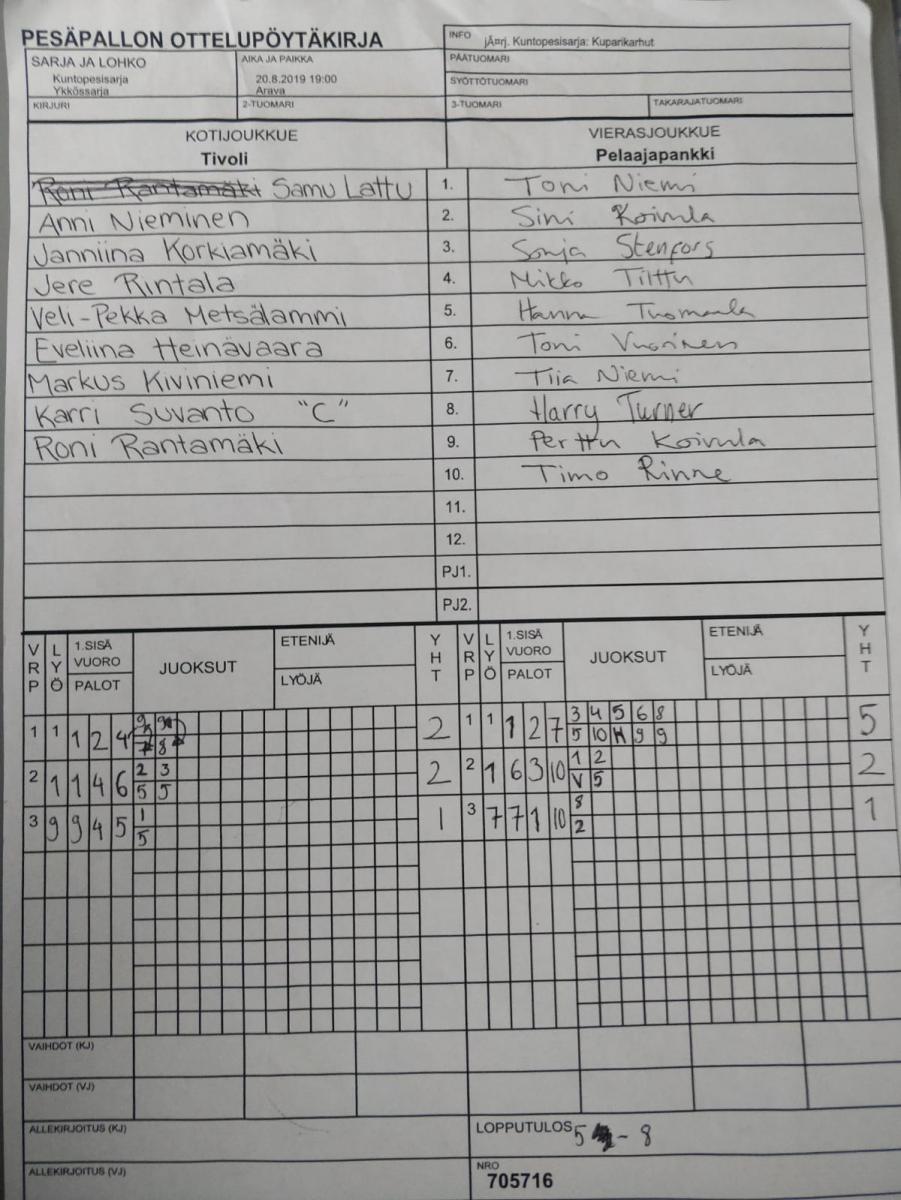 PESÄPALLON OTTELUPÖYTÄKIRJA
INFO jÃ¤rj. Kuntopesisarja: Kuparikarhut
SARJA JA LOHKO
Kuntopesisarja
Ykkössarja
AIKA JA PAIKKA
20.8.2019 19:00
Arava
PÄÄTUOMARI
SYÖTTÖTUOMARI
KIRJURI 2-TUOMARI 3-TUOMARI TAKARAJATUOMARI
KOTIJOUKKUE VIERASJOUKKUE
Tivoli Pelaajapankki
Roni Rantamäki Samu Lattu 1. Toni Niemi
Anni Nieminen 2. Sini Koivula
Janniina Korkiamäki 3. Sonja Stenfors
Jere Rintala 4. Mikko Tilttu
Veli-Pekka Metsälammi 5. Hanna Tuomaala
Eveliina Heinävaara 6. Toni Vuorinen
Markus Kiviniemi 7. Tiia Niemi
Karri Suvanto "C" 8. Harry Turner
Roni Rantamäki 9. Perttu Koivula
10. Timo Rinne
11.
12.
PJ1.
PJ2.
VRP LYÖ 1.SISÄ VUORO PALOT JUOKSUT ETENIJÄ LYÖJÄ YHT VRP LYÖ 1.SISÄ VUORO PALOT JUOKSUT ETENIJÄ LYÖJÄ YHT
3 4 5 6 8
1 1 1 2 4 8 2 1 1 1 2 7 5 10 9 9 5
2 3 1 2
2 1 1 4 6 5 5 2 2 1 6 3 10 V 5 2
1 8
3 9 9 4 5 5 1 3 7 7 1 10 2 1
VAIHDOT (KJ)
VAIHDOT (VJ)
ALLEKIRJOITUS (KJ) LOPPUTULOS 5 - 8
ALLEKIRJOITUS (VJ) NRO
705716